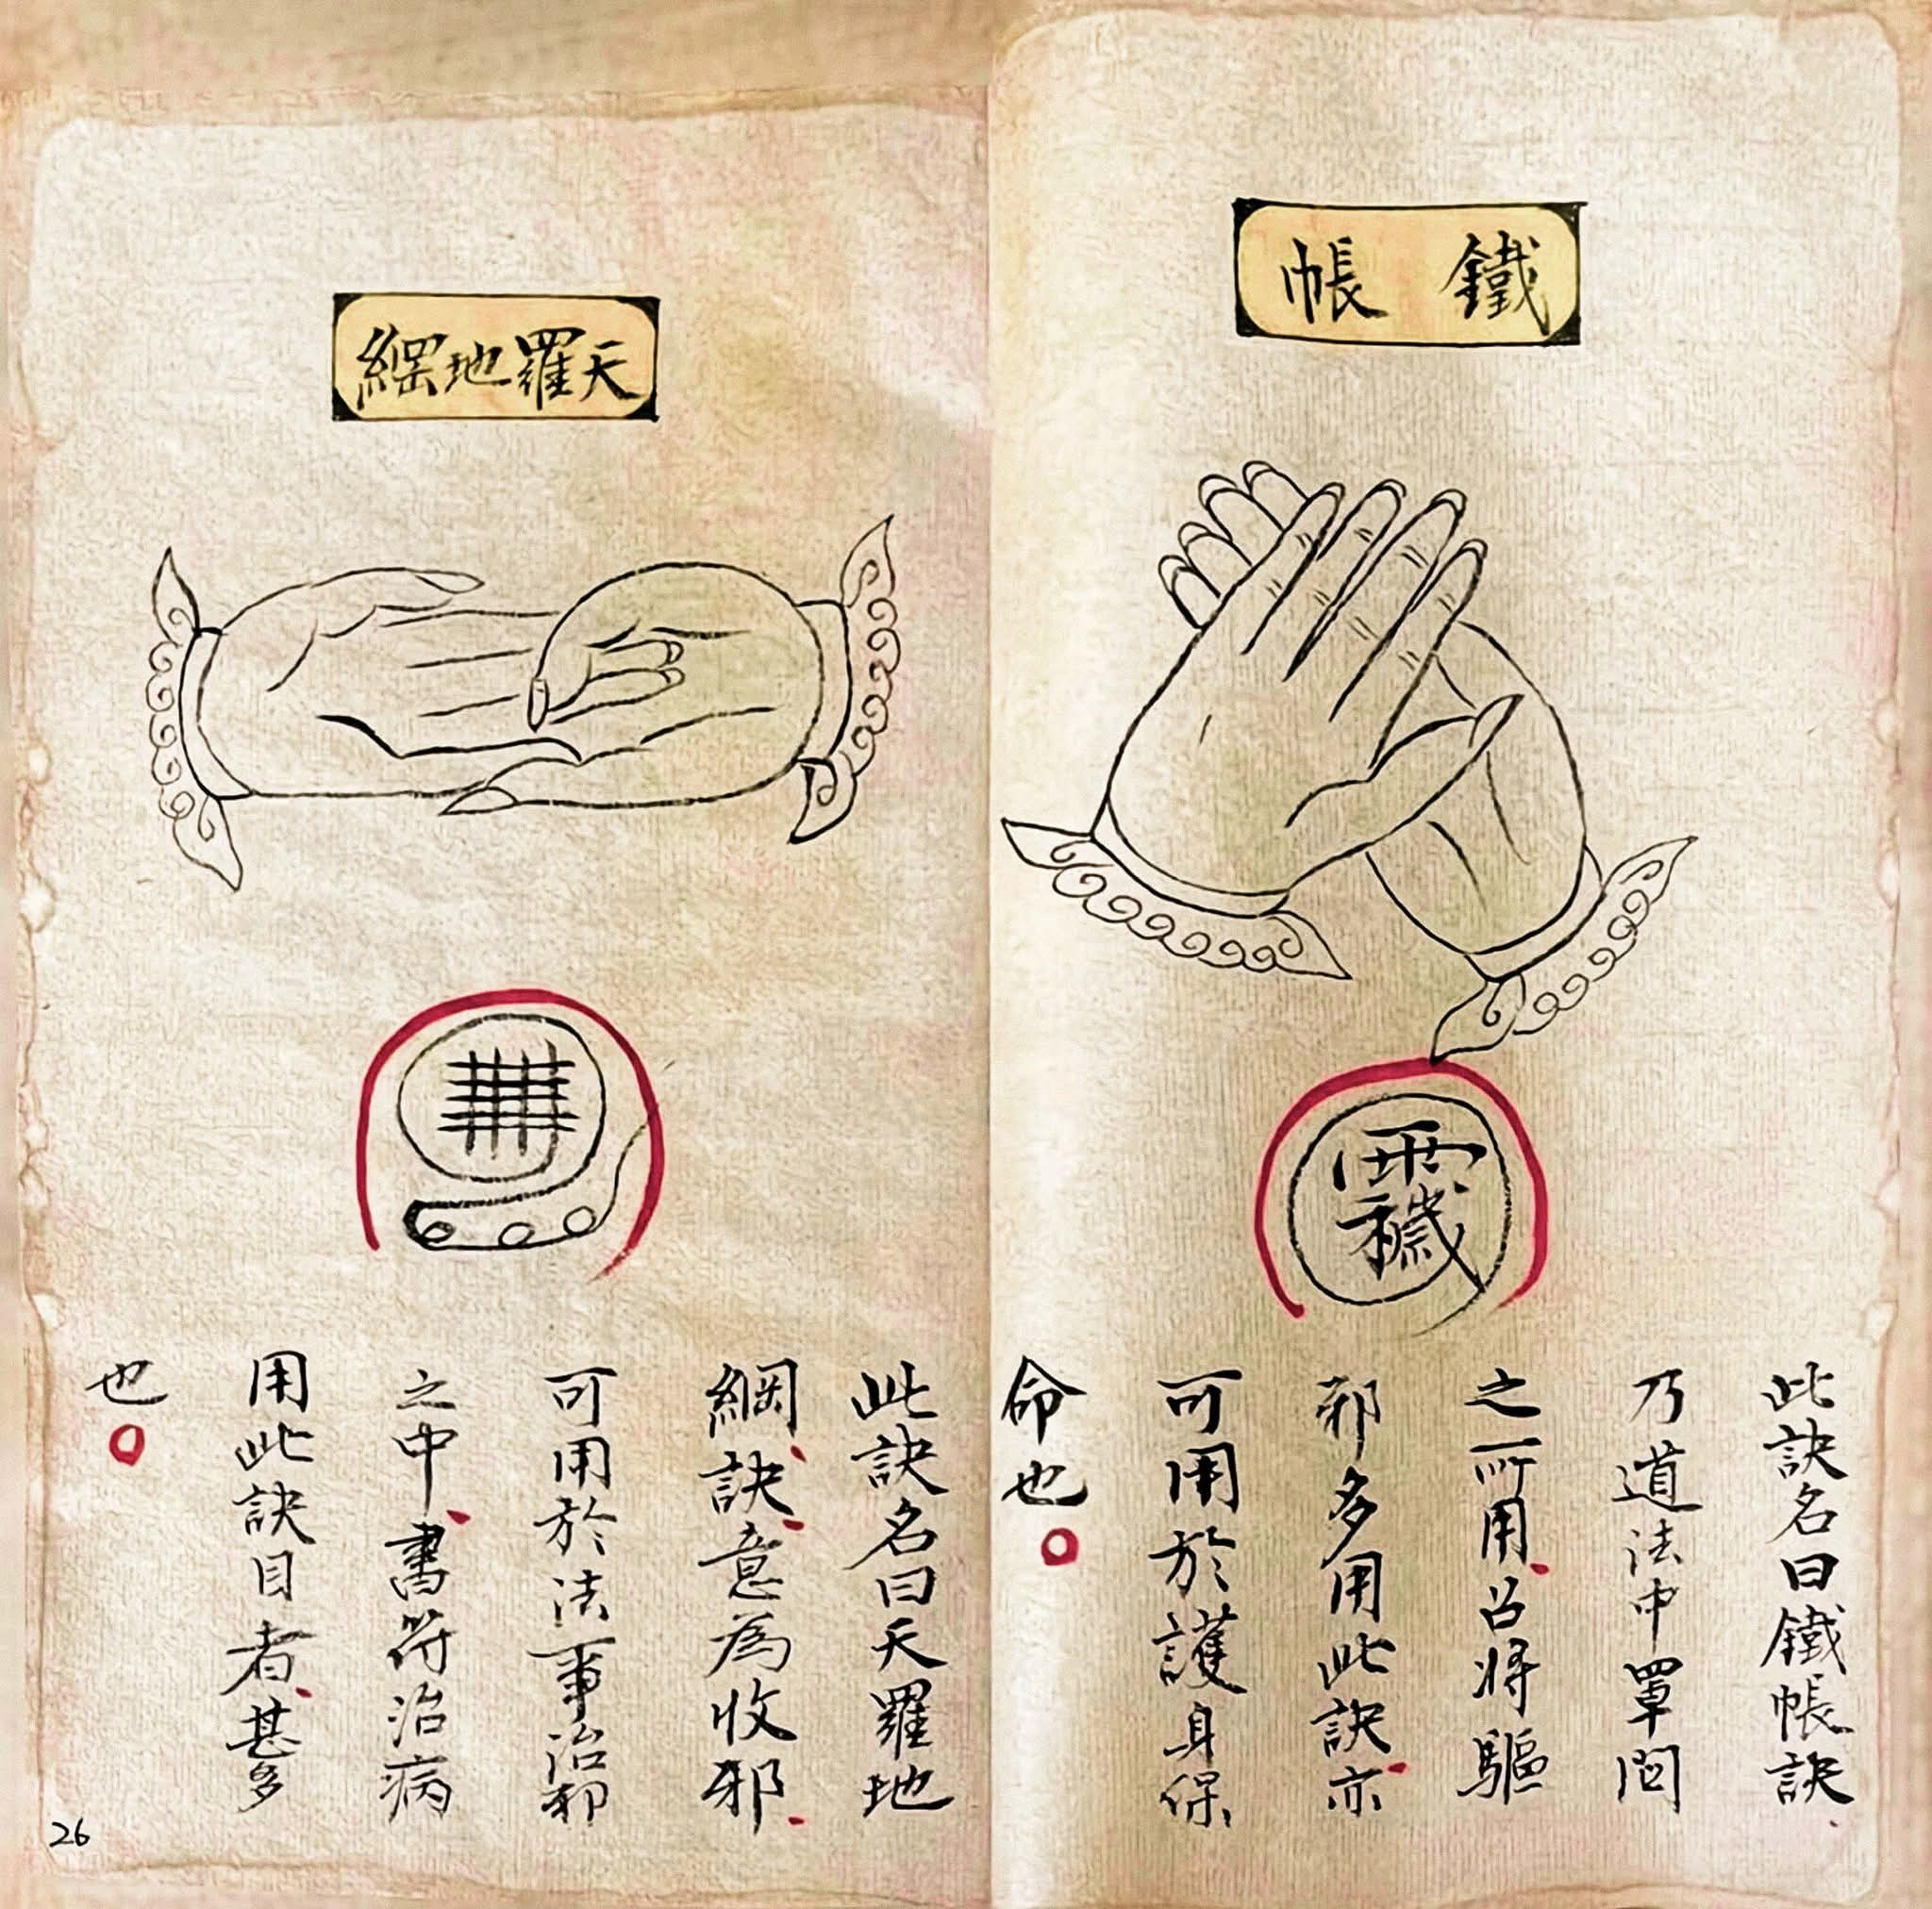 鐵帳
此訣名曰鐵帳訣
乃道法中罩悶
之所用召將驅
邪多用此訣亦
可用於護身保
命也
天羅地網
此訣名曰天羅地
網訣意為收邪
可用於法事治邪
之中書符治病
用此訣目者甚多
也
26